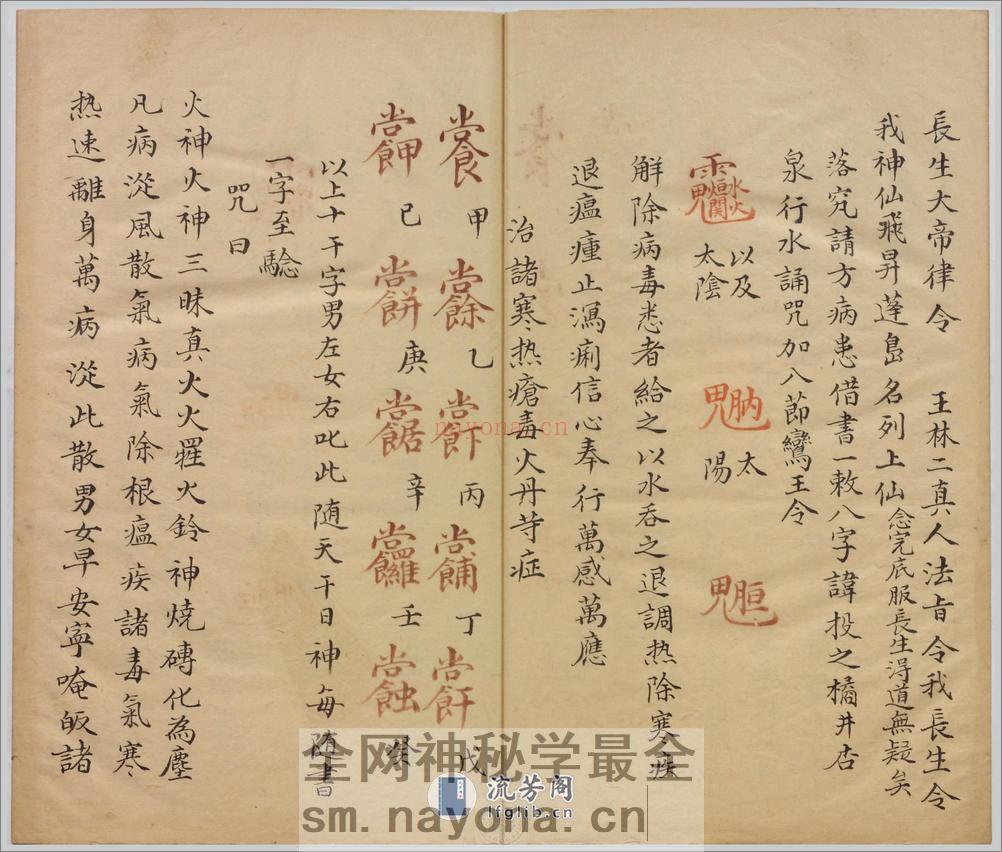 長生大帝律令　王林二真人法旨令我長生令
我神仙飛昇蓬島名列上仙念完底服長生淂道無疑矣
落究請方病患借書一敕八字諱投之橘井杏
泉行水誦咒加八節鸞王令
以及
太陰
太
陽
解除病毒悉者給之以水吞之退調热除寒疾
退瘟瘇止瀉痢信心奉行萬感萬應
治諸寒热瘡毒火丹等症
甲
乙
丙
丁
戊
己
庚
辛
壬
癸
以上十干字男左女右叱此随天干日神每随書
一字至驗
咒曰
火神火神三昧真火火羅火鈴神燒磚化為塵
凡病從風散氣病氣除根瘟疾諸毒氣寒
热速離身萬病從此散男女早安寧唵皈諸
nayona.cn
全网神秘学最全
流芳阁
lfglib.cn
sm.nayona.cn